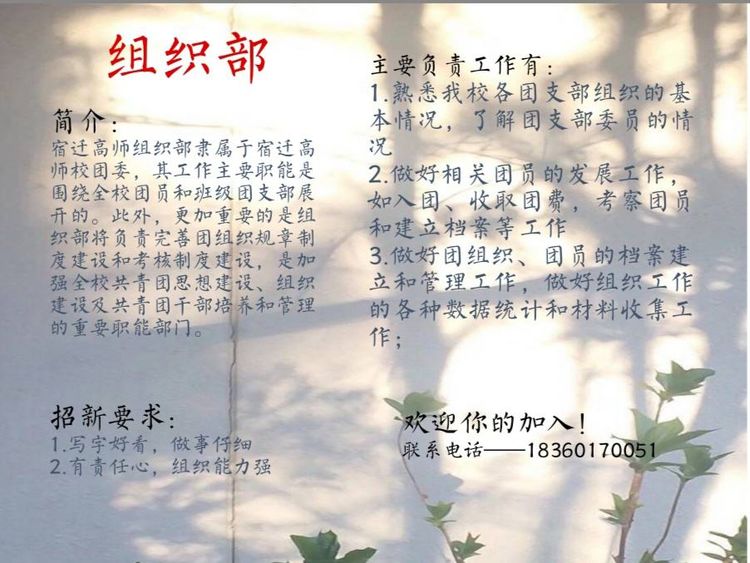 组织部
简介：
宿迁高师组织部隶属于宿迁高
师校团委，其工作主要职能是
围绕全校团员和班级团支部展
开的。此外，更加重要的是组
织部将负责完善团组织规章制
度建设和考核制度建设，是加
强全校共青团思想建设、组织
建设及共青团干部培养和管理
的重要职能部门。
招新要求：
1.写字好看，做事仔细
2.有责任心，组织能力强
主要负责工作有：
1.熟悉我校各团支部组织的基
本情况，了解团支部委员的情
况
2.做好相关团员的发展工作，
如入团、收取团费，考察团员
和建立档案等工作
3.做好团组织、团员的档案建
立和管理工作，做好组织工作
的各种数据统计和材料收集工
作；
欢迎你的加入！
联系电话——18360170051